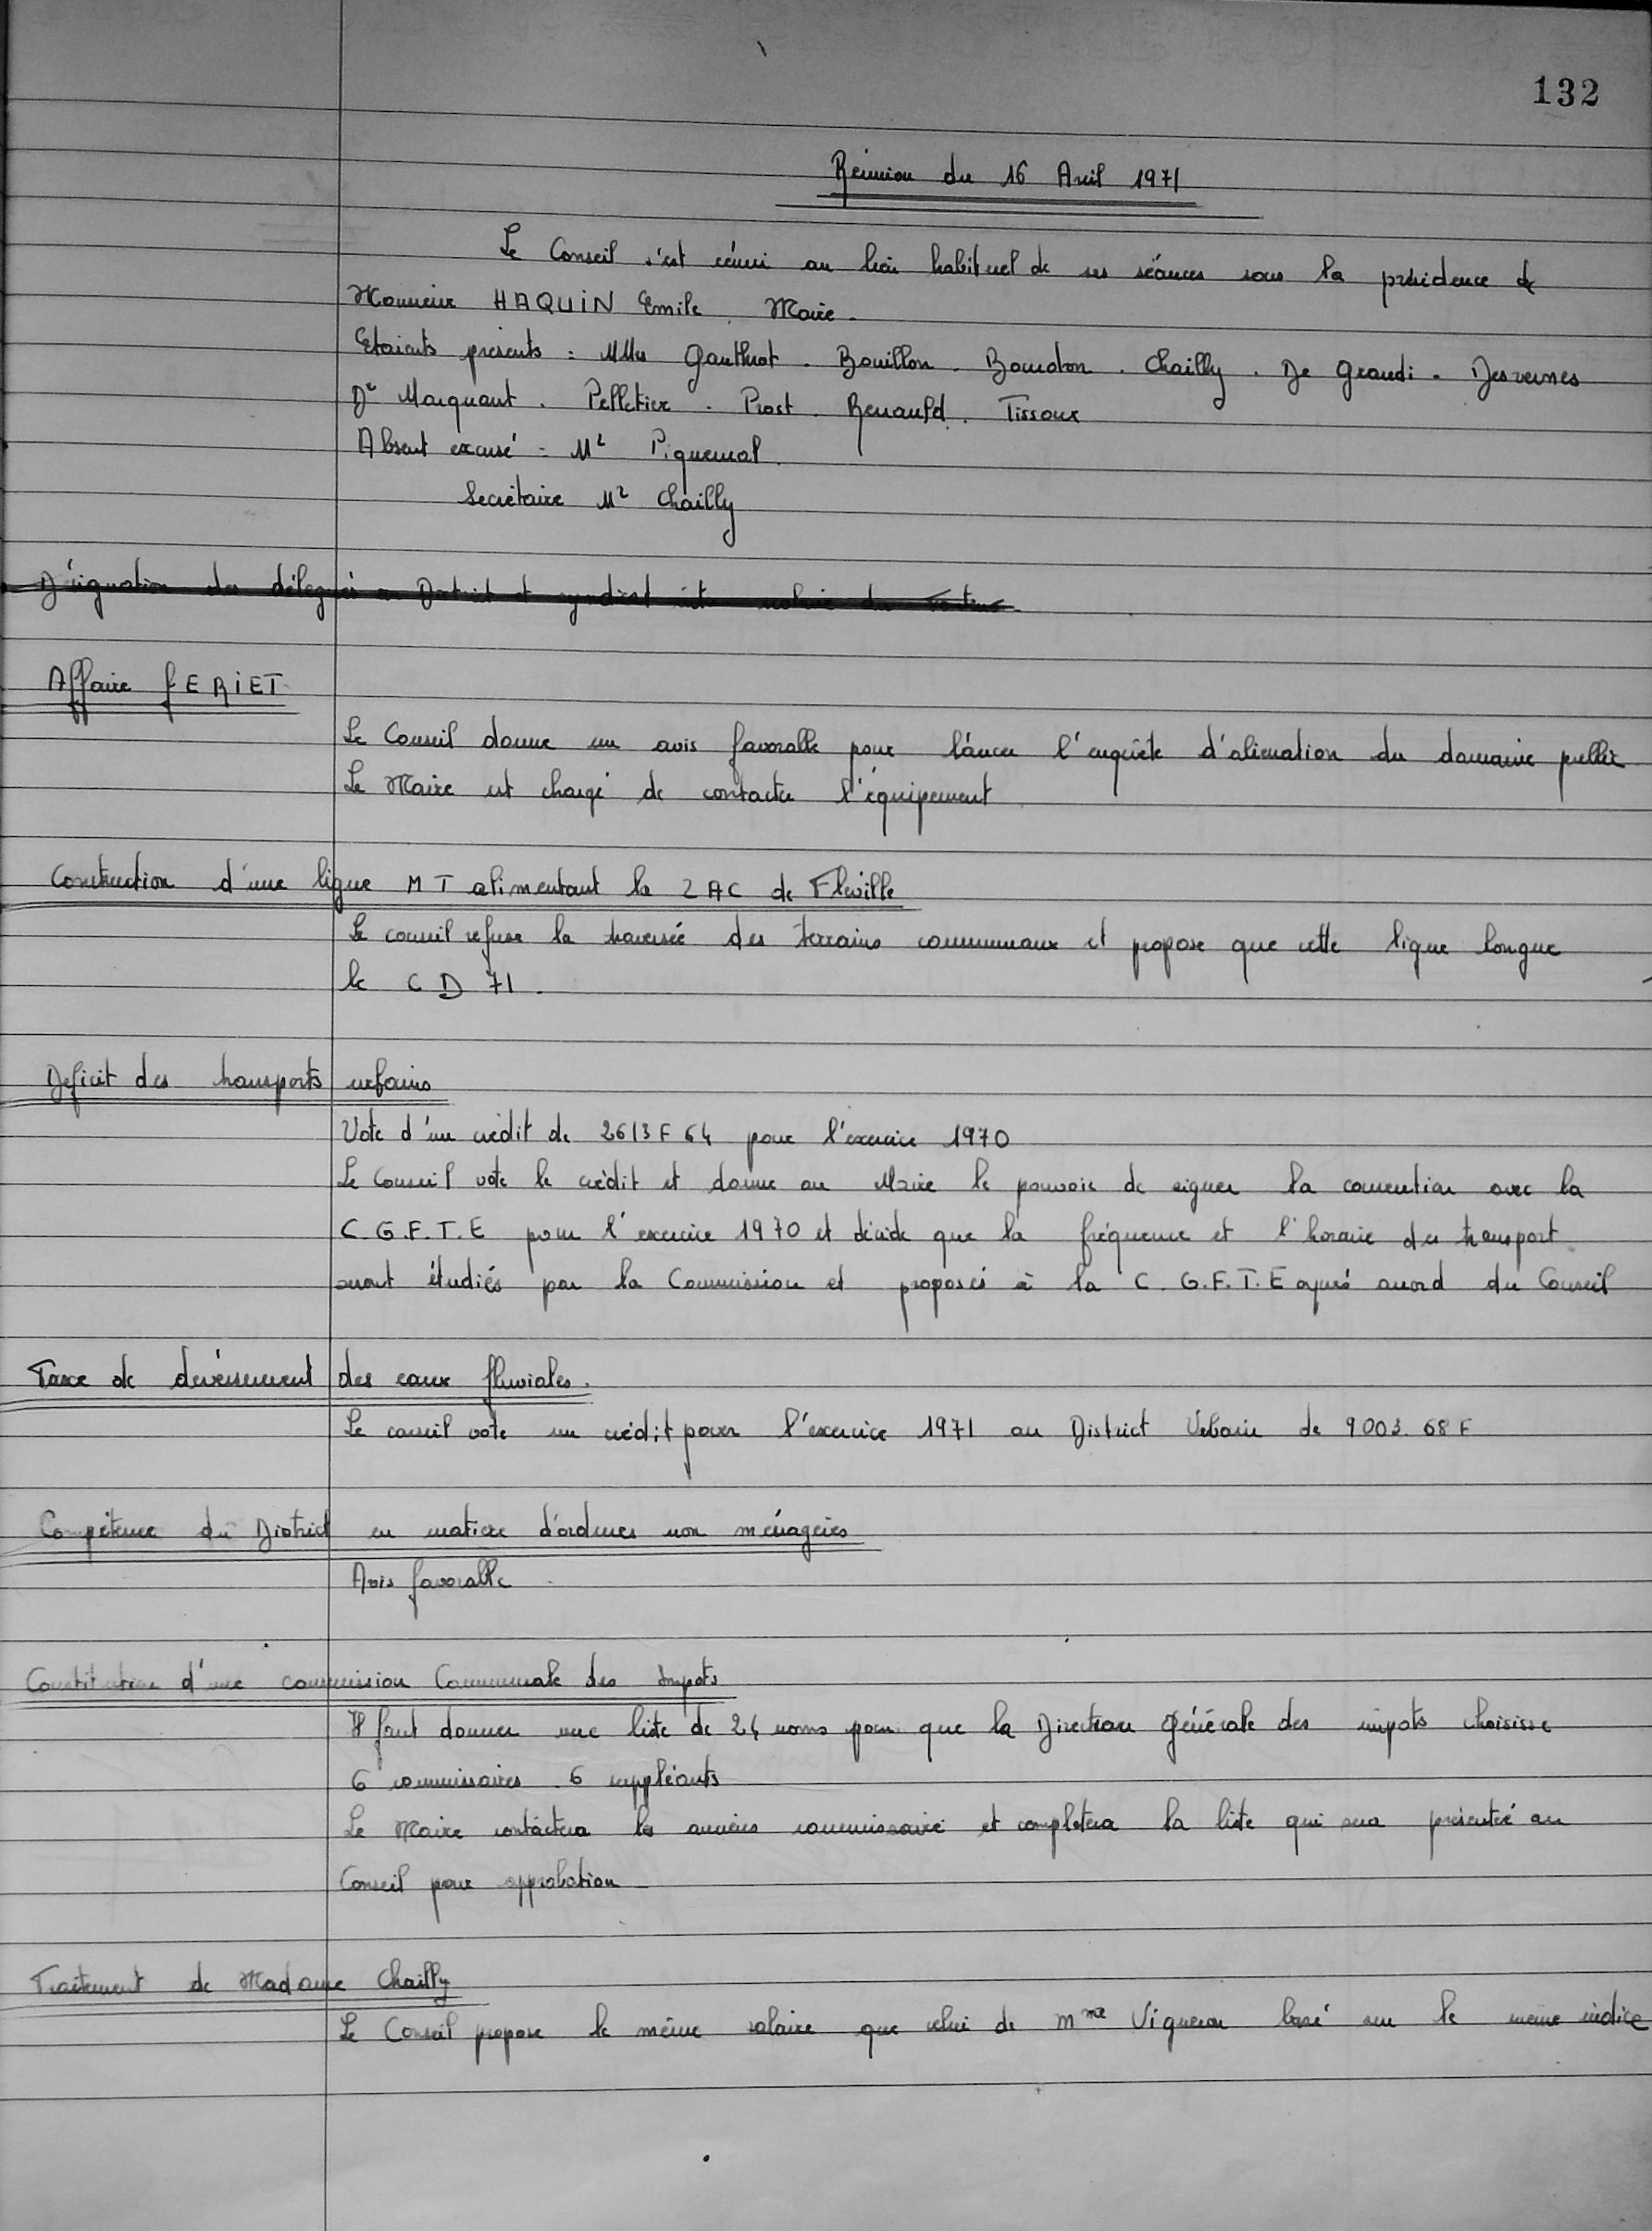 132
Réunion du 16 Avril 1971
Le Conseil s'est réuni au lieu habituel de ses séances sous la présidence de
Monsieur HAQUIN Emile. Maire.
Etaients présents : MMrs Gauthrot. Bouillon. Bourdon. Chailly. De Grandi. Desvernes
Dr Marquant. Pelletier. Prost. Renauld. Tissoux
Absent excusé : Mr Piquemal.
Secrétaire Mr Chailly
Désignation des délegués au District et syndicat
Affaire FERiET
Le Conseil donne un avis favorable pour lancer l'enquête d'alienation du domaine public
Le Maire est chargé de contacter l'équipement
Construction d'une ligne MT alimentant la ZAC de Fléville
Le conseil refuse la traversée des terrains communaux et propose que cette ligne longue
le CD 71.
Deficit des transports urbains
Vote d'un crédit de 2613 F 64 pour l'exercice 1970
Le Conseil vote le crédit et donne au Maire le pouvoir de signer la convention avec la
C.G.F.T.E pour l'exercice 1970 et décide que la fréquence et l'horaire du transport
seront étudiés par la Commission et proposés à la C.G.F.T.E après accord du Conseil
Taxe de deversement des eaux fluviales.
Le conseil vote un crédit pour l'exercice 1971 au District Urbain de 9003.68 F
Compétence du District en matière d'ordures non ménagères
Avis favorable.
Constitution d'une commission Communale des Impots
Il faut donner une liste de 24 noms pour que la Direction Générale des impots choisisse
6 commissaires. 6 suppléants
Le Maire contactera les anciens commissaire et completera la liste qui sera présentée au
Conseil pour approbation
Traitement de Madame Chailly
Le Conseil propose le même salaire que celui de Mme Vigneron basé sur le même indice